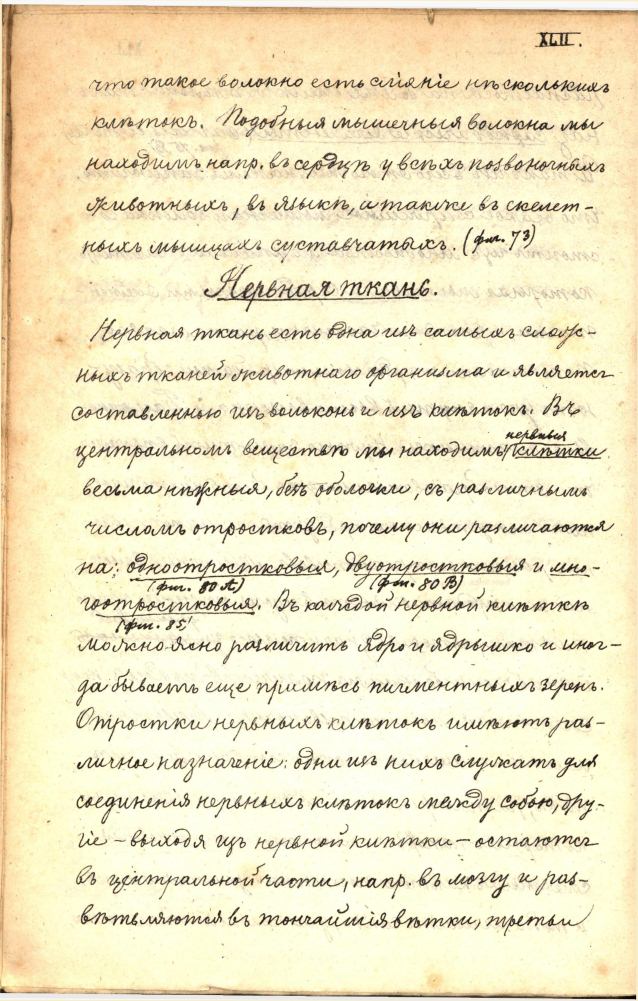 XLII.
что такое волокно есть слiянiе нѣсколькихъ
клѣтокъ. Подобныя мышечныя волокна мы
находимъ напр. въ сердцѣ у всѣхъ позвоночныхъ
животныхъ, въ языкѣ, а также въ скелет-
ныхъ мышцахъ суставчатыхъ. (фиг. 73)
Нервная ткань.
Нервная ткань есть одна изъ самыхъ слож-
ныхъ тканей животнаго организма и является
составленною изъ волоконъ и изъ клѣтокъ. Въ
центральномъ веществѣ мы находимъ нервныя клѣтки
весьма нѣжныя, безъ оболочки, съ различнымъ
числомъ отростковъ, почему они различаются
на: одноотростковыя, двуотростковыя и мно-
(фиг. 80 А) (фиг. 80 В)
гоотростковыя. Въ каждой нервной клѣткѣ
(фиг. 85)
можно ясно различить ядро и ядрышко и иног-
да бываетъ еще примѣсь пигментныхъ зеренъ.
Отростки нервныхъ клѣтокъ имѣютъ раз-
личное назначенiе: одни изъ нихъ служатъ для
соединенiя нервныхъ клѣтокъ между собою, дру-
гiе – выходя изъ нервной клѣтки – остаются
въ центральной части, напр. въ мозгу и раз-
вѣтвляются въ тончайшiя вѣтки, третьи